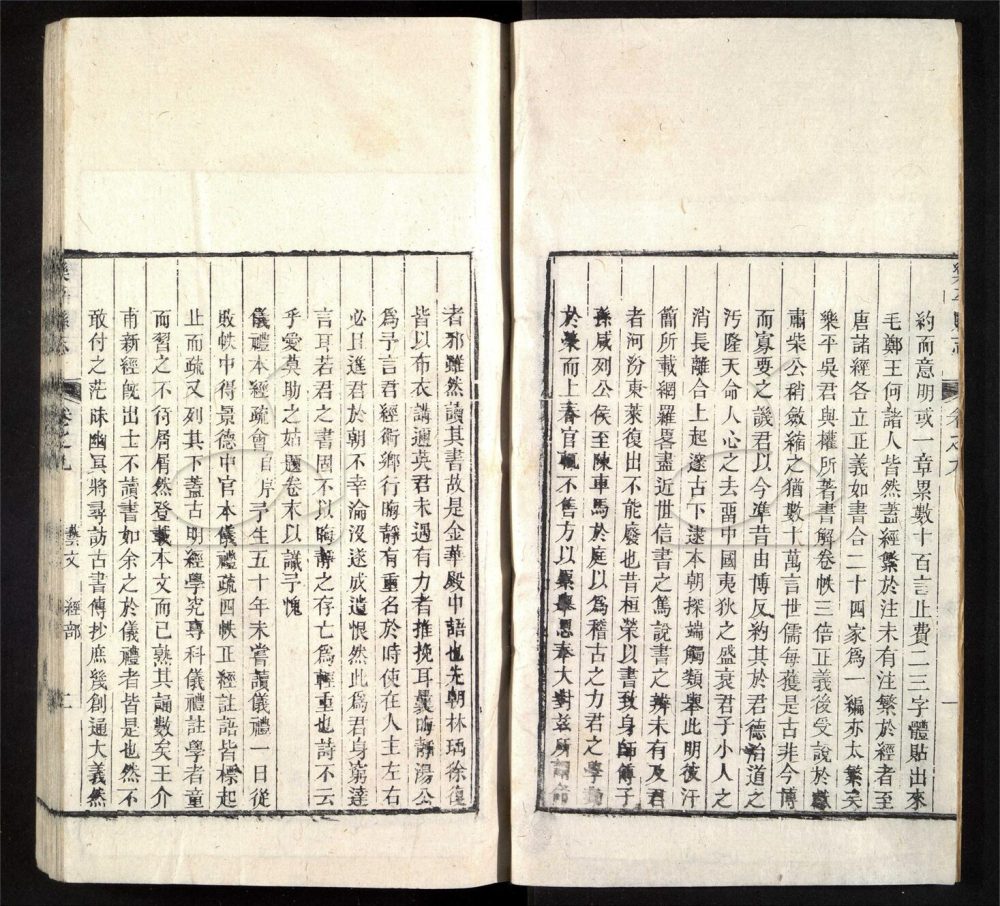 約而意明或一章累數十百言止費二三字體貼出來
毛鄭王何諸人皆然蓋經繁於注未有注繁於經者至
唐諸經各立正義如書合二十四家為一編亦太繁矣
樂平吳君與權所著書解卷帙三倍正義後受說於
肅柴公稍斂縮之猶數十萬言世儒每獲是古非今博
而寡要之譏君以今準昔由博反約其於君德治道之
汚隆天命人心之去畱中國夷狄之盛衰君子小人之
消長離合上起邃古下逮本朝探端觸類舉此明彼汗
簡所載網羅畧盡近世信書之篤說書之辨未有及君
者河汾東萊復出不能廢也昔桓榮以書致身師傅子
孫咸列公侯至陳車馬於庭以為稽古之力君之學
於榮而上春官輒不售方以累舉恩奉大對茲所謂命
者邪雖然讀其書故是金華殿中語也先朝林瑀徐復
皆以布衣講邇英君未遇有力者推挽耳曩晦靜湯公
為予言君經術鄉行晦靜有重名於時使在人主左右
必且進君於朝不幸淪沒遂成遺恨然此為君身窮達
言耳若君之書固不以晦靜之存亡為輕重也詩不云
乎愛莫助之姑題卷末以識予愧
儀禮本經疏會自序予生五十年未嘗讀儀禮一日從
敗帙中得景德中官本儀禮疏四帙正經註語皆標起
止而疏又列其下蓋古明經學究專科儀禮註學者童
而習之不待屑屑然登載本文而已熟其誦數矣王介
甫新經旣出士不讀書如余之於儀禮者皆是也然不
敢付之茫昧幽冥將尋訪古書傳抄庶幾創通大義然
卷之九 藝文 經部 二